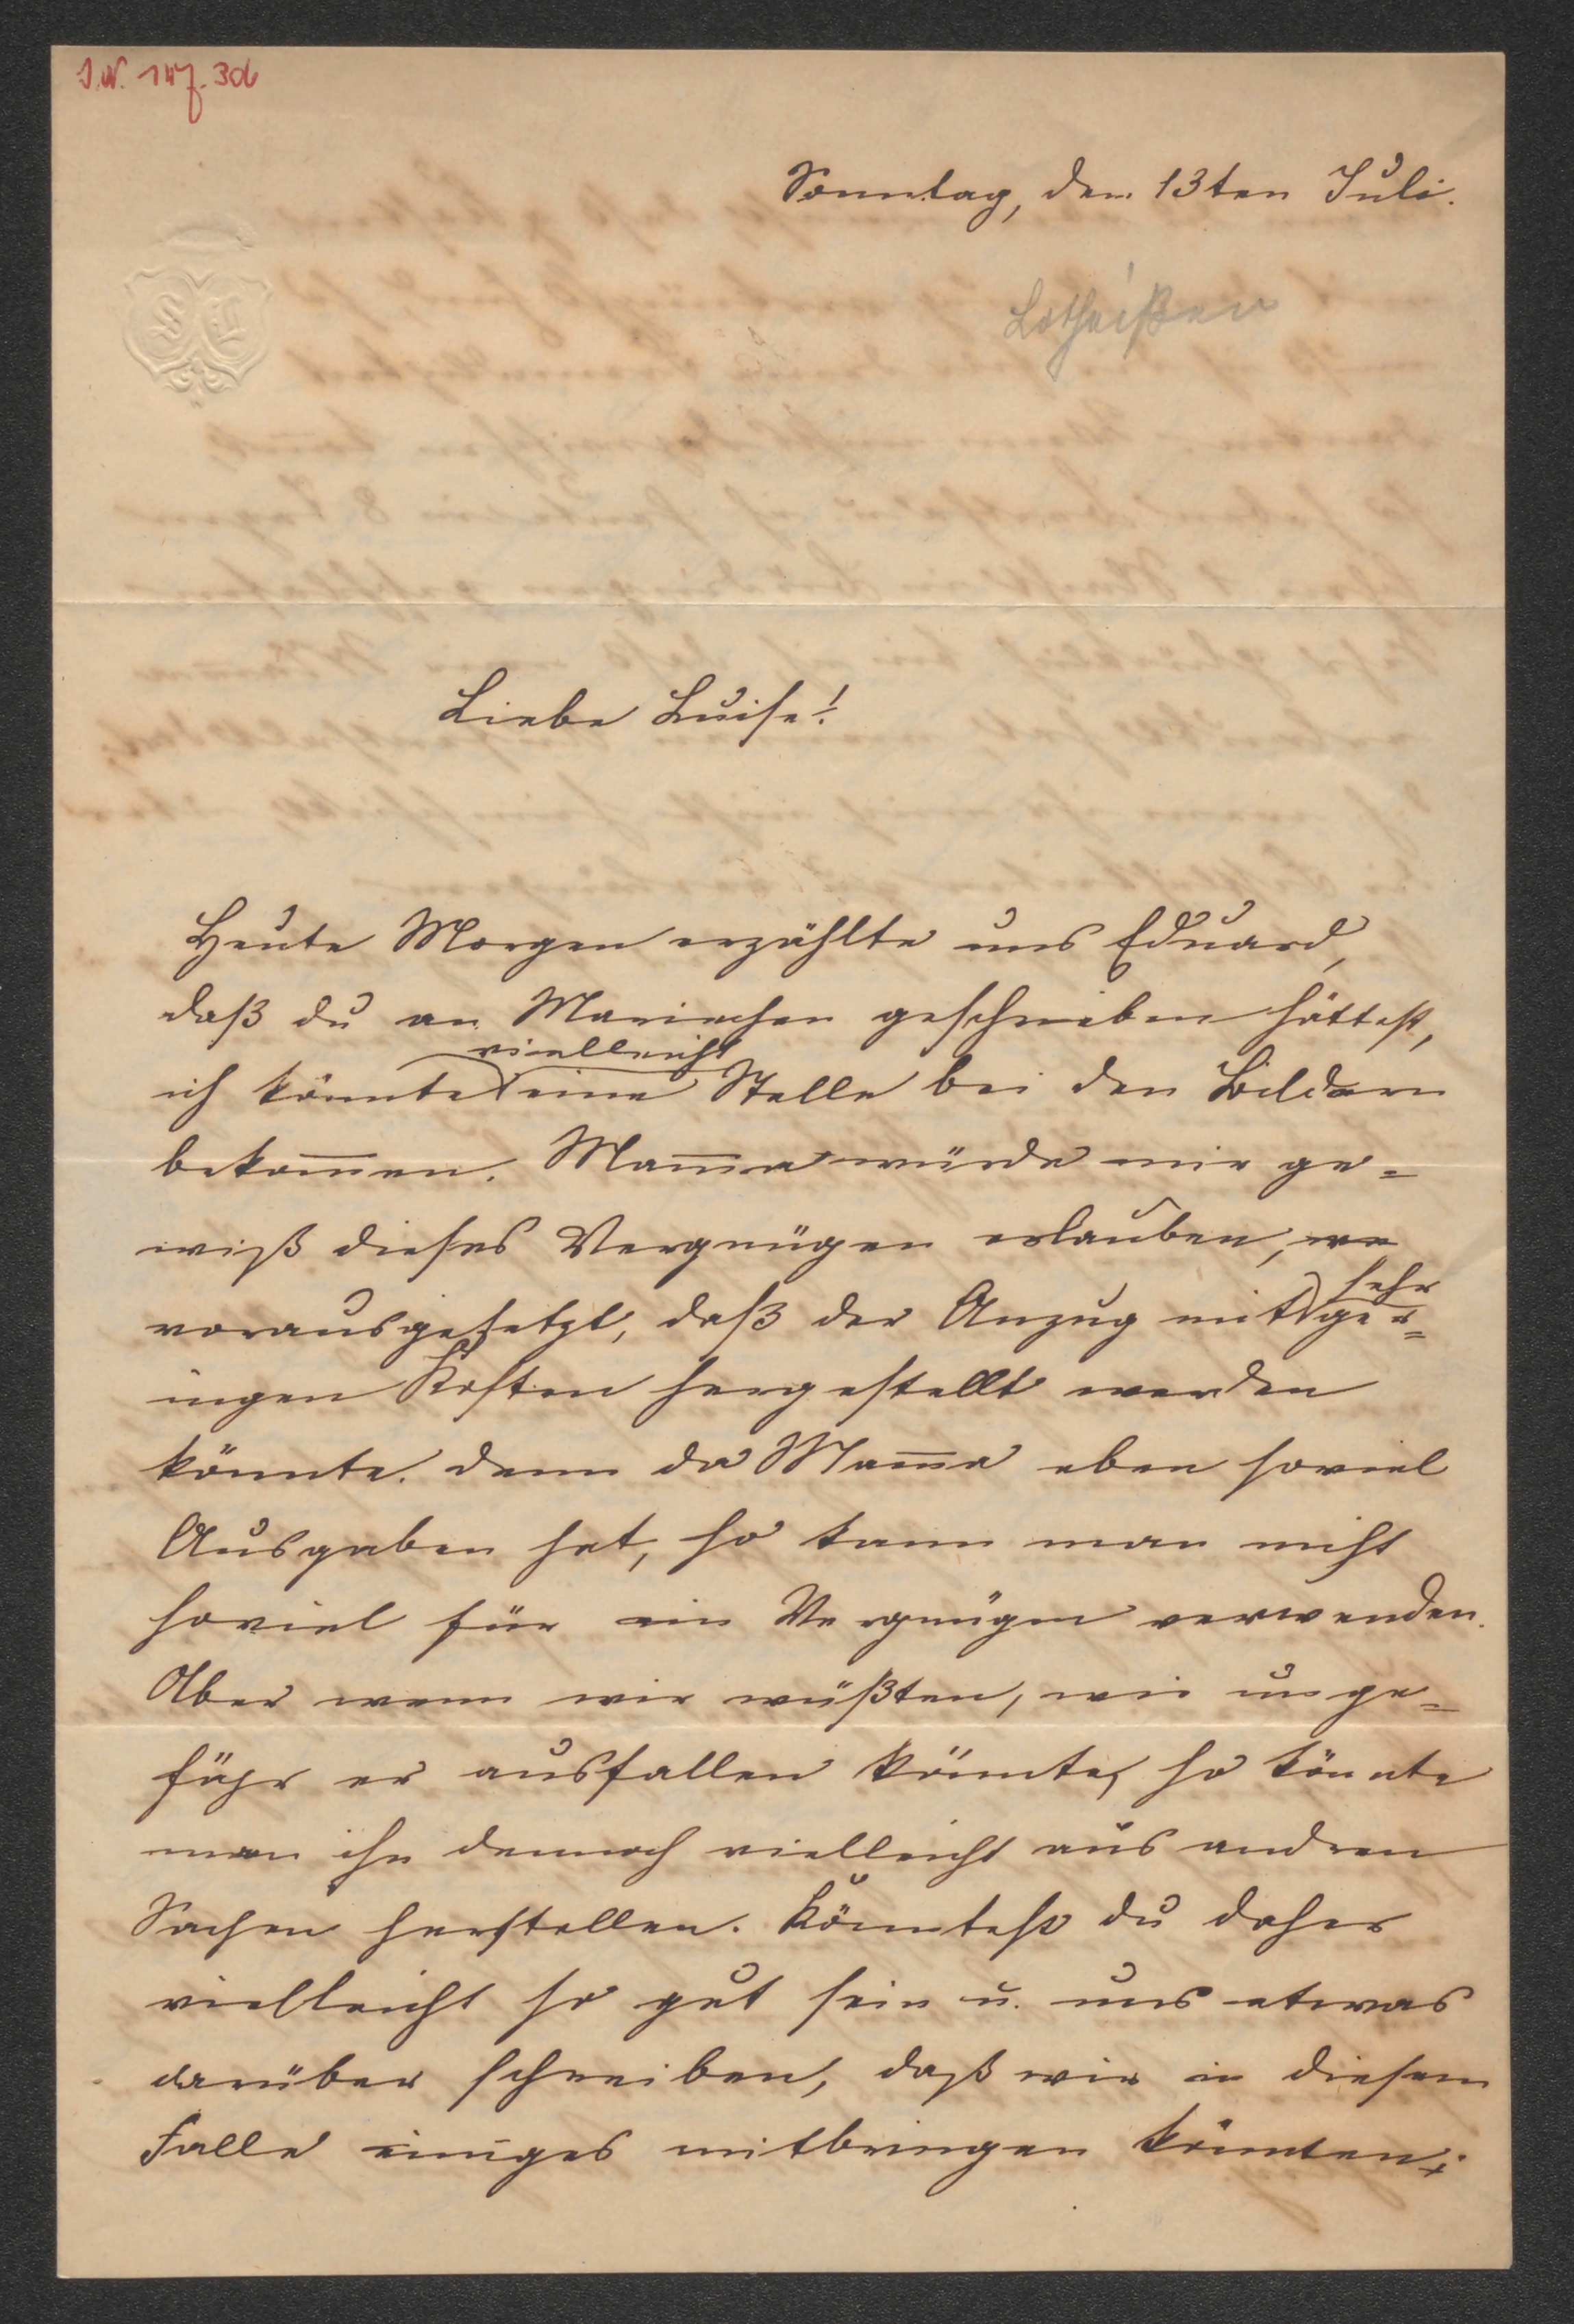 I.N. 147.306
Sonntag, den 13ten Juli.
Lotheißen
Liebe Luise!
Heute Morgen erzählte uns Eduard,
daß du an Mariechen geschrieben hättest,
vielleicht
ich könnte eine Stelle bei den Bildern
bekom̅en. Mam̅a würde mir ge=
wiß dieses Vergnügen erlauben, we
sehr
vorausgesetzt, daß der Anzug mit ger=
ingen Kosten hergestellt werden
könnte. denn da Mam̅a eben soviel
Ausgaben hat, so kann man nicht
soviel für ein Vergnügen verwenden.
Aber wenn wir wüßten, wie unge=
fähr er ausfallen könnte, so könnte
man ihn dennoch vielleicht aus andren
Sachen herstellen. Könntest du daher
vielleicht so gut sein u. uns etwas
darüber schreiben, daß wir in diesem
Falle einiges mitbringen könnten;